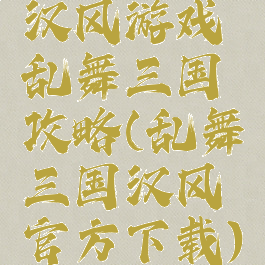 汉风游戏
乱舞三国
攻略(乱舞
三国汉风
官方下载)